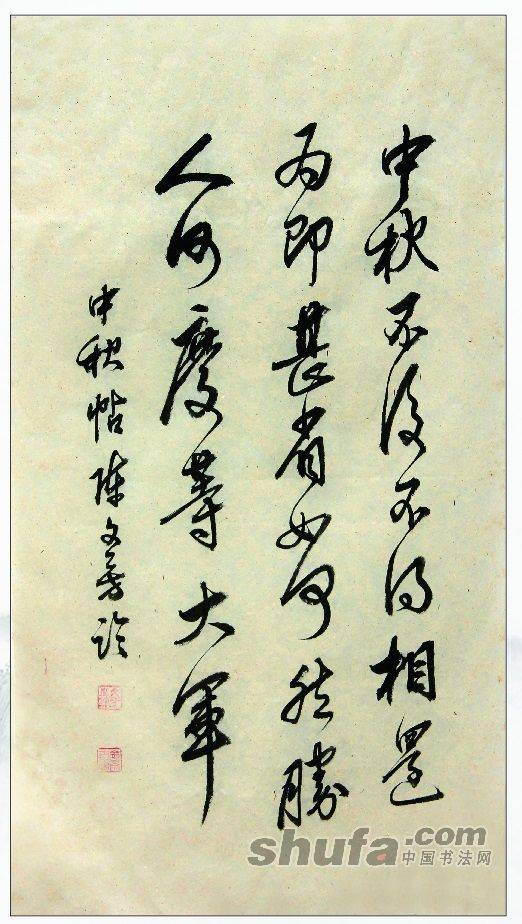 中秋不復不得相還
為即甚省如何然勝
人何慶等大軍
中秋帖 陳文芳臨
shufa.com
中国书法网